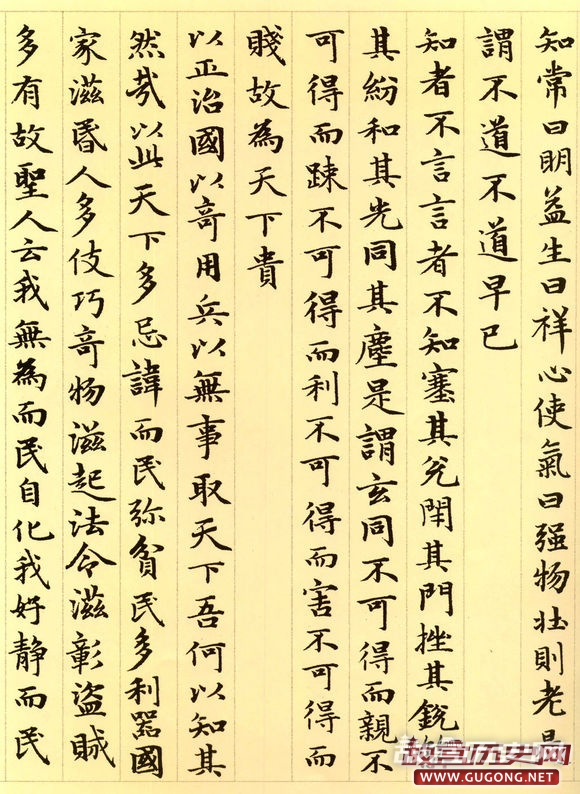 知常曰明益生曰祥心使氣曰强物壯則老是
謂不道不道早已
知者不言言者不知塞其兊閇其門挫其銳
其紛和其光同其塵是謂玄同不可得而親不
可得而踈不可得而利不可得而害不可得而
賤故為天下貴
以正治國以竒用兵以無事取天下吾何以知其
然哉以此天下多忌諱而民弥貧民多利器國
家滋昬人多伎巧竒物滋起法令滋彰盜賊
多有故聖人云我無為而民自化我好静而民
故宫历史网
WWW.GUGONG.NET